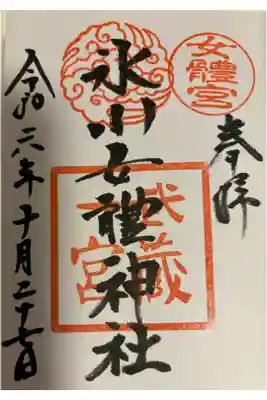 奉拝
女體宮
氷川女體神社
武蔵
一宮
令和六年十月二十七日